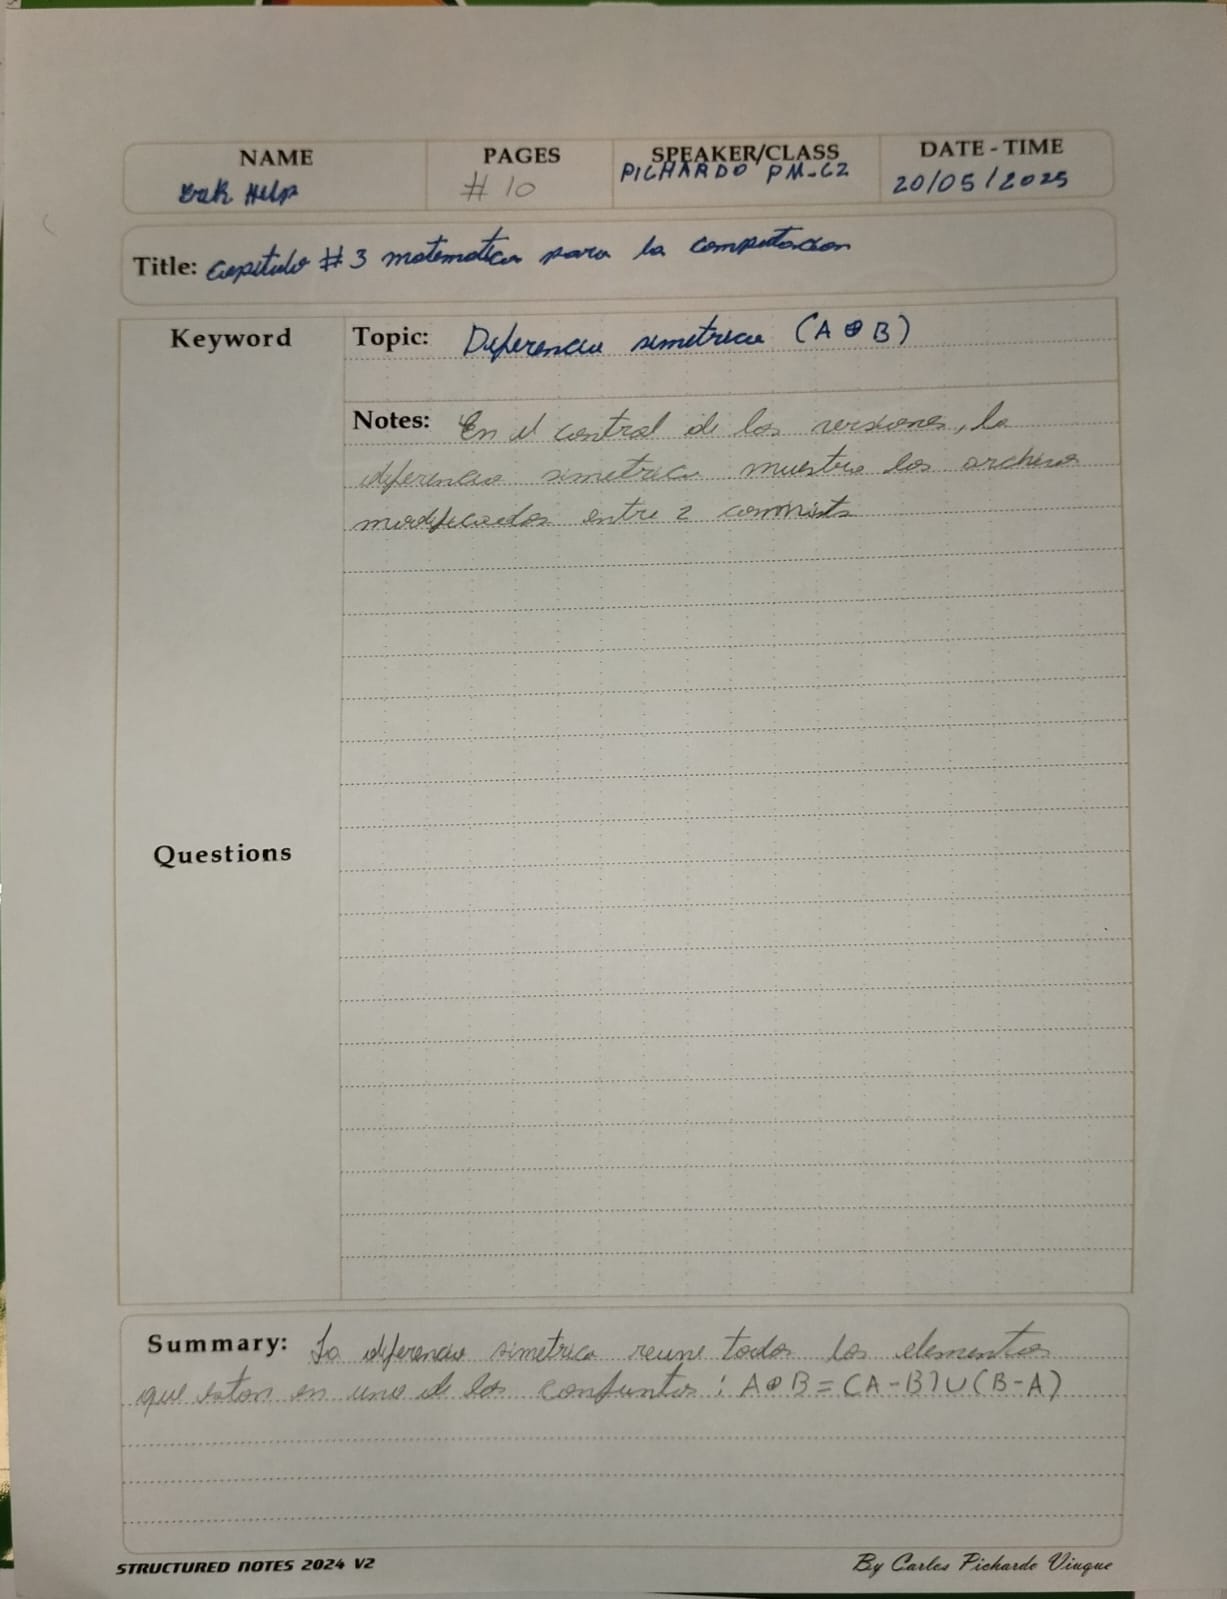 NAME PAGES SPEAKER/CLASS DATE - TIME
Erik Help # 10 PICHARDO PM-C2 20/05/2025
Title: Capitulo # 3 matematica para la computacion
Keyword
Topic: Diferencia simetrica (A ⊕ B)
Notes: En el control de los versiones, la
diferencia simetrica muestra los archivos
modificados entre 2 commits
Questions
Summary: La diferencia simetrica reune todos los elementos
que estan en uno de los conjuntos : A⊕B = (A-B)∪(B-A)
STRUCTURED NOTES 2024 V2
By Carlos Pichardo Viuque